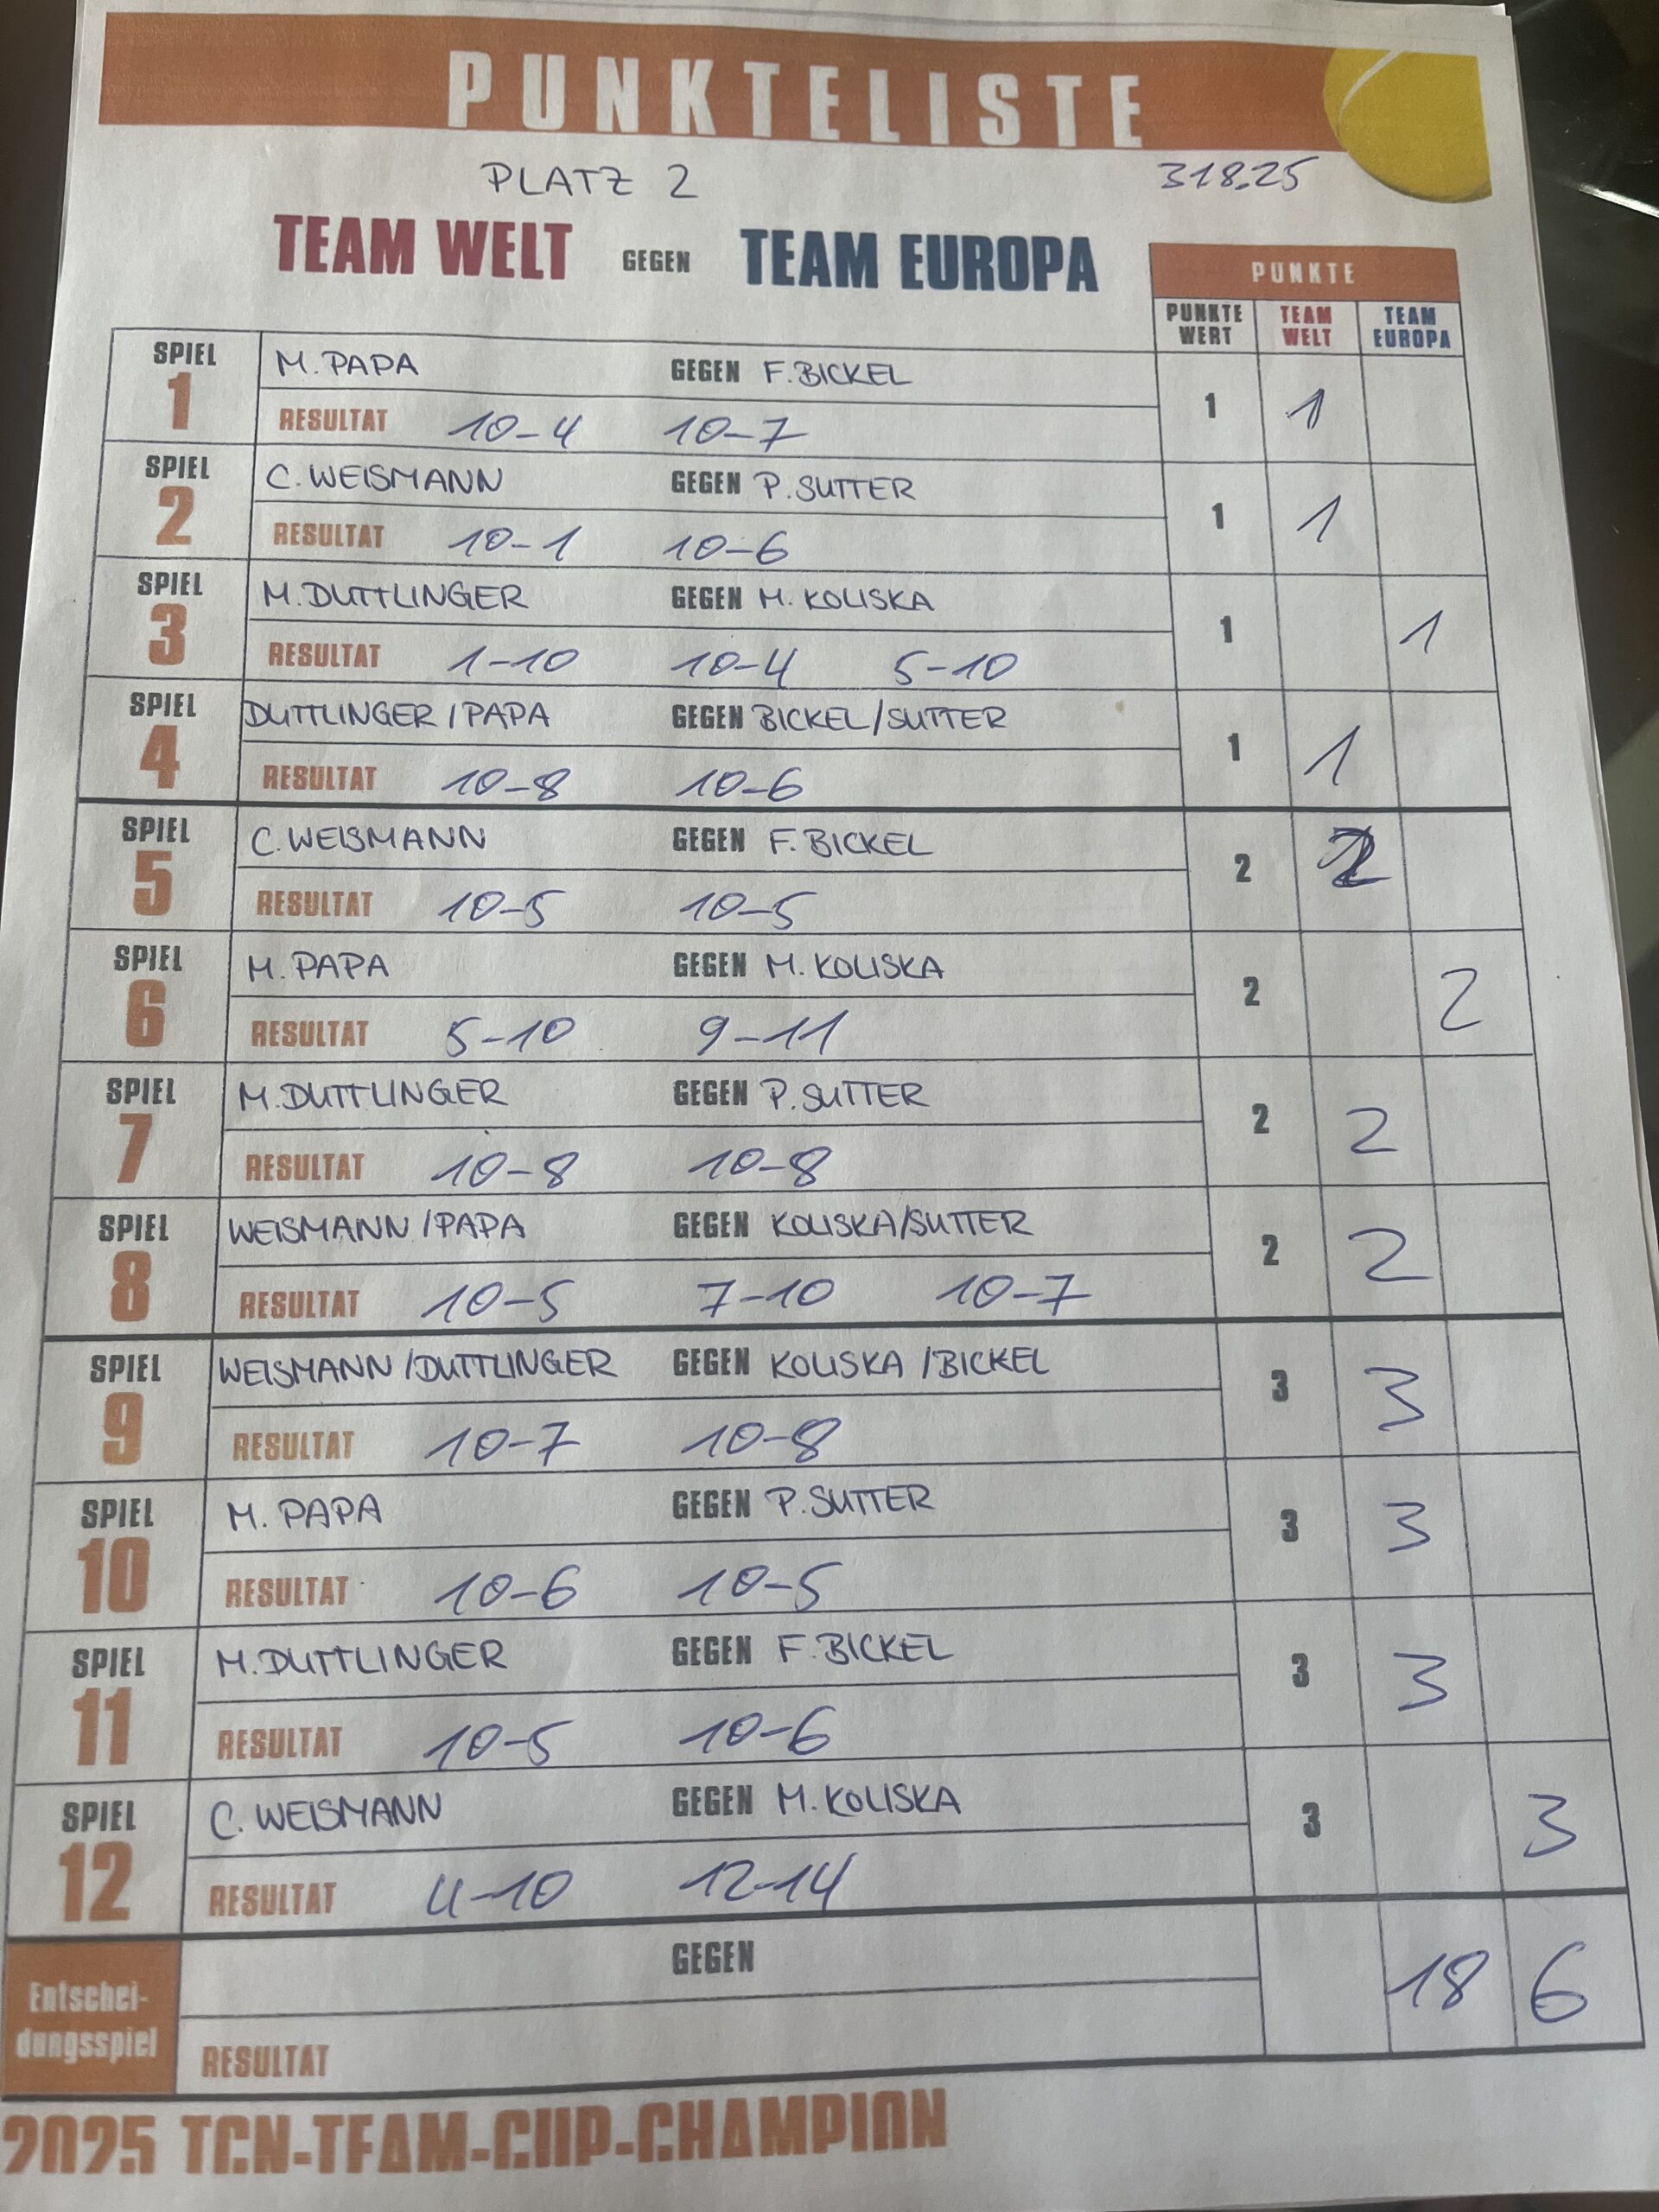 PUNKTELISTE
PLATZ 2 318.25
TEAM WELT GEGEN TEAM EUROPA
PUNKTE
PUNKTE WERT TEAM WELT TEAM EUROPA
SPIEL 1 M. PAPA GEGEN F. BICKEL 1 1
RESULTAT 10-4 10-7
SPIEL 2 C. WEISMANN GEGEN P. SUTTER 1 1
RESULTAT 10-1 10-6
SPIEL 3 M. DUTTLINGER GEGEN M. KOLISKA 1 1
RESULTAT 1-10 10-4 5-10
SPIEL 4 DUTTLINGER/PAPA GEGEN BICKEL/SUTTER 1 1
RESULTAT 10-8 10-6
SPIEL 5 C. WEISMANN GEGEN F. BICKEL 2 2
RESULTAT 10-5 10-5
SPIEL 6 M. PAPA GEGEN M. KOLISKA 2 2
RESULTAT 5-10 9-11
SPIEL 7 M. DUTTLINGER GEGEN P. SUTTER 2 2
RESULTAT 10-8 10-8
SPIEL 8 WEISMANN/PAPA GEGEN KOLISKA/SUTTER 2 2
RESULTAT 10-5 7-10 10-7
SPIEL 9 WEISMANN/DUTTLINGER GEGEN KOLISKA/BICKEL 3 3
RESULTAT 10-7 10-8
SPIEL 10 M. PAPA GEGEN P. SUTTER 3 3
RESULTAT 10-6 10-5
SPIEL 11 M. DUTTLINGER GEGEN F. BICKEL 3 3
RESULTAT 10-5 10-6
SPIEL 12 C. WEISMANN GEGEN M. KOLISKA 3 3
RESULTAT 4-10 12-14
Entschei-
dungsspiel GEGEN 18 6
RESULTAT
2025 TCN-TEAM-CUP-CHAMPION